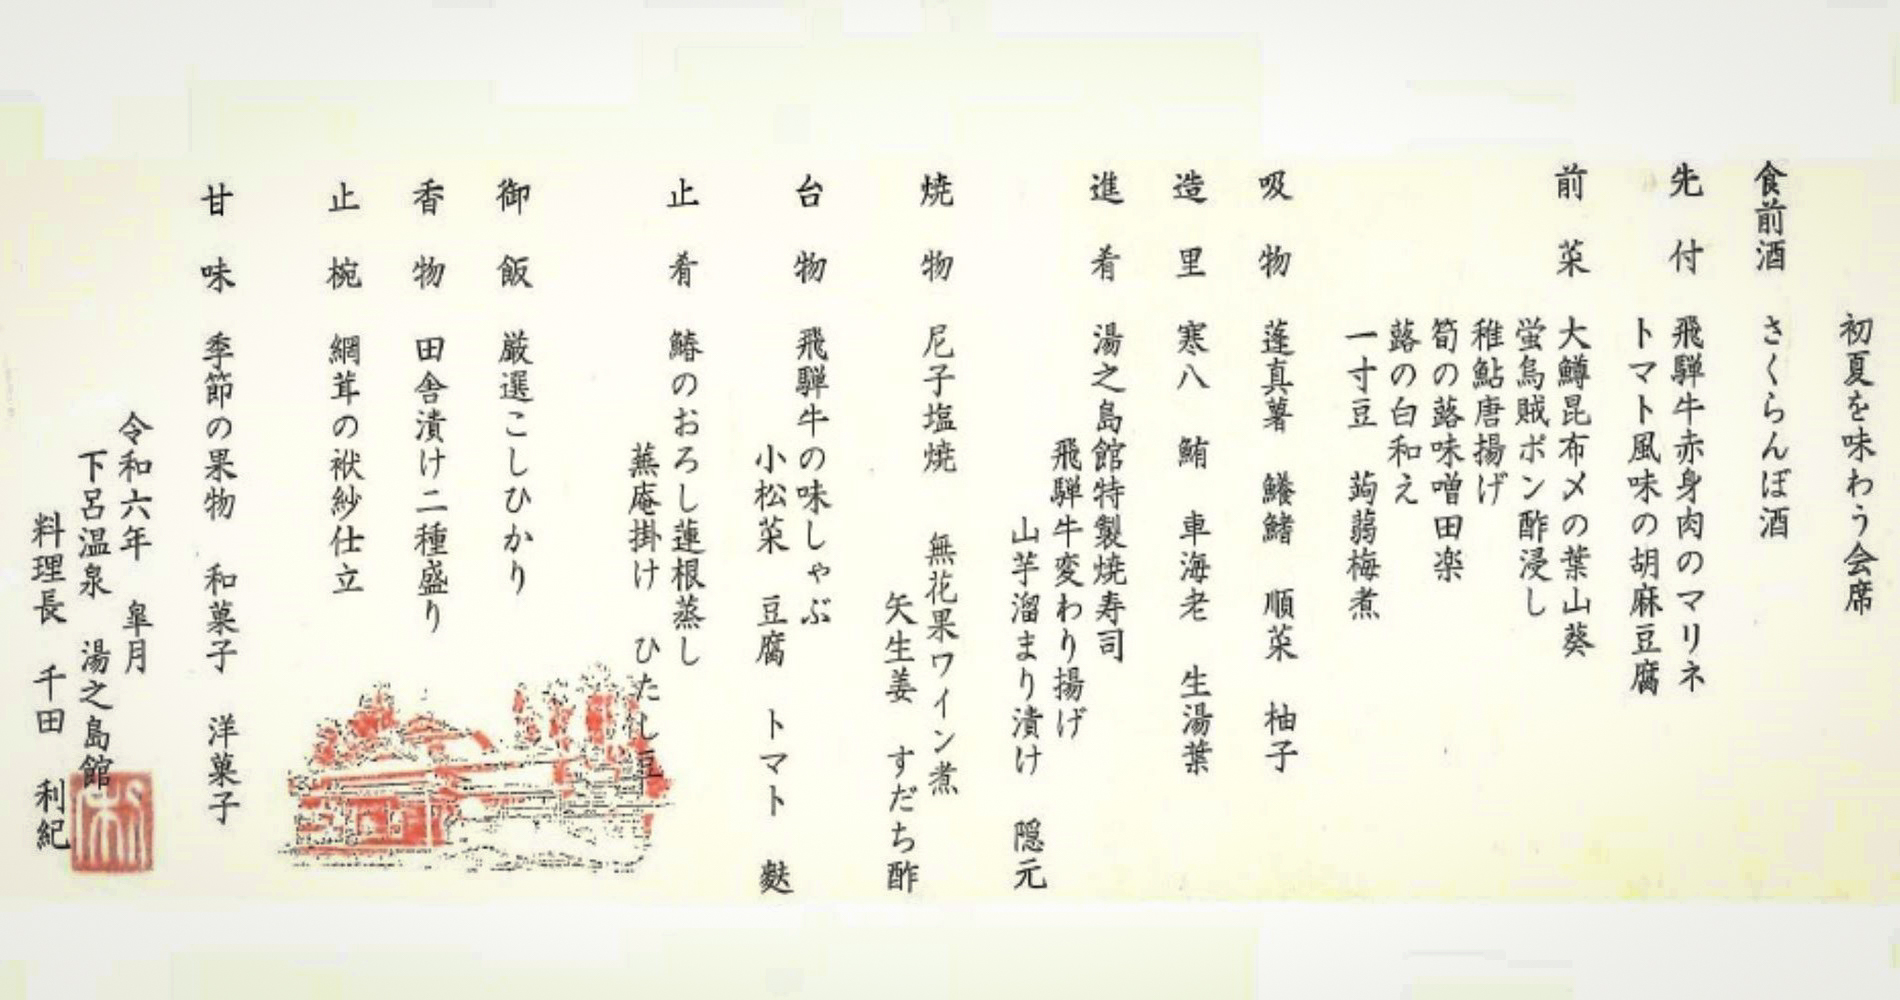 初夏を味わう会席
食前酒 さくらんぼ酒
先付 飛騨牛赤身肉のマリネ
トマト風味の胡麻豆腐
前菜 大鱒昆布〆の葉山葵
蛍烏賊ポン酢浸し
稚鮎唐揚げ
筍の蕗味噌田楽
蕗の白和え
一寸豆 蒟蒻梅煮
吸物 蓬真薯 鰭 順菜 柚子
造里 寒八 鮪 車海老 生湯葉
進肴 湯之島館特製焼寿司
飛騨牛変わり揚げ
山芋溜まり漬け 隠元
焼物 尼子塩焼 無花果ワイン煮
矢生姜 すだち酢
台物 飛騨牛の味しゃぶ
小松菜 豆腐 トマト 麩
止肴 鰆のおろし蓮根蒸し
蕪庵掛け ひたし豆
御飯 厳選こしひかり
香物 田舎漬け二種盛り
止椀 網茸の袱紗仕立
甘味 季節の果物 和菓子 洋菓子
令和六年 皐月
下呂温泉 湯之島館
料理長 千田 利紀